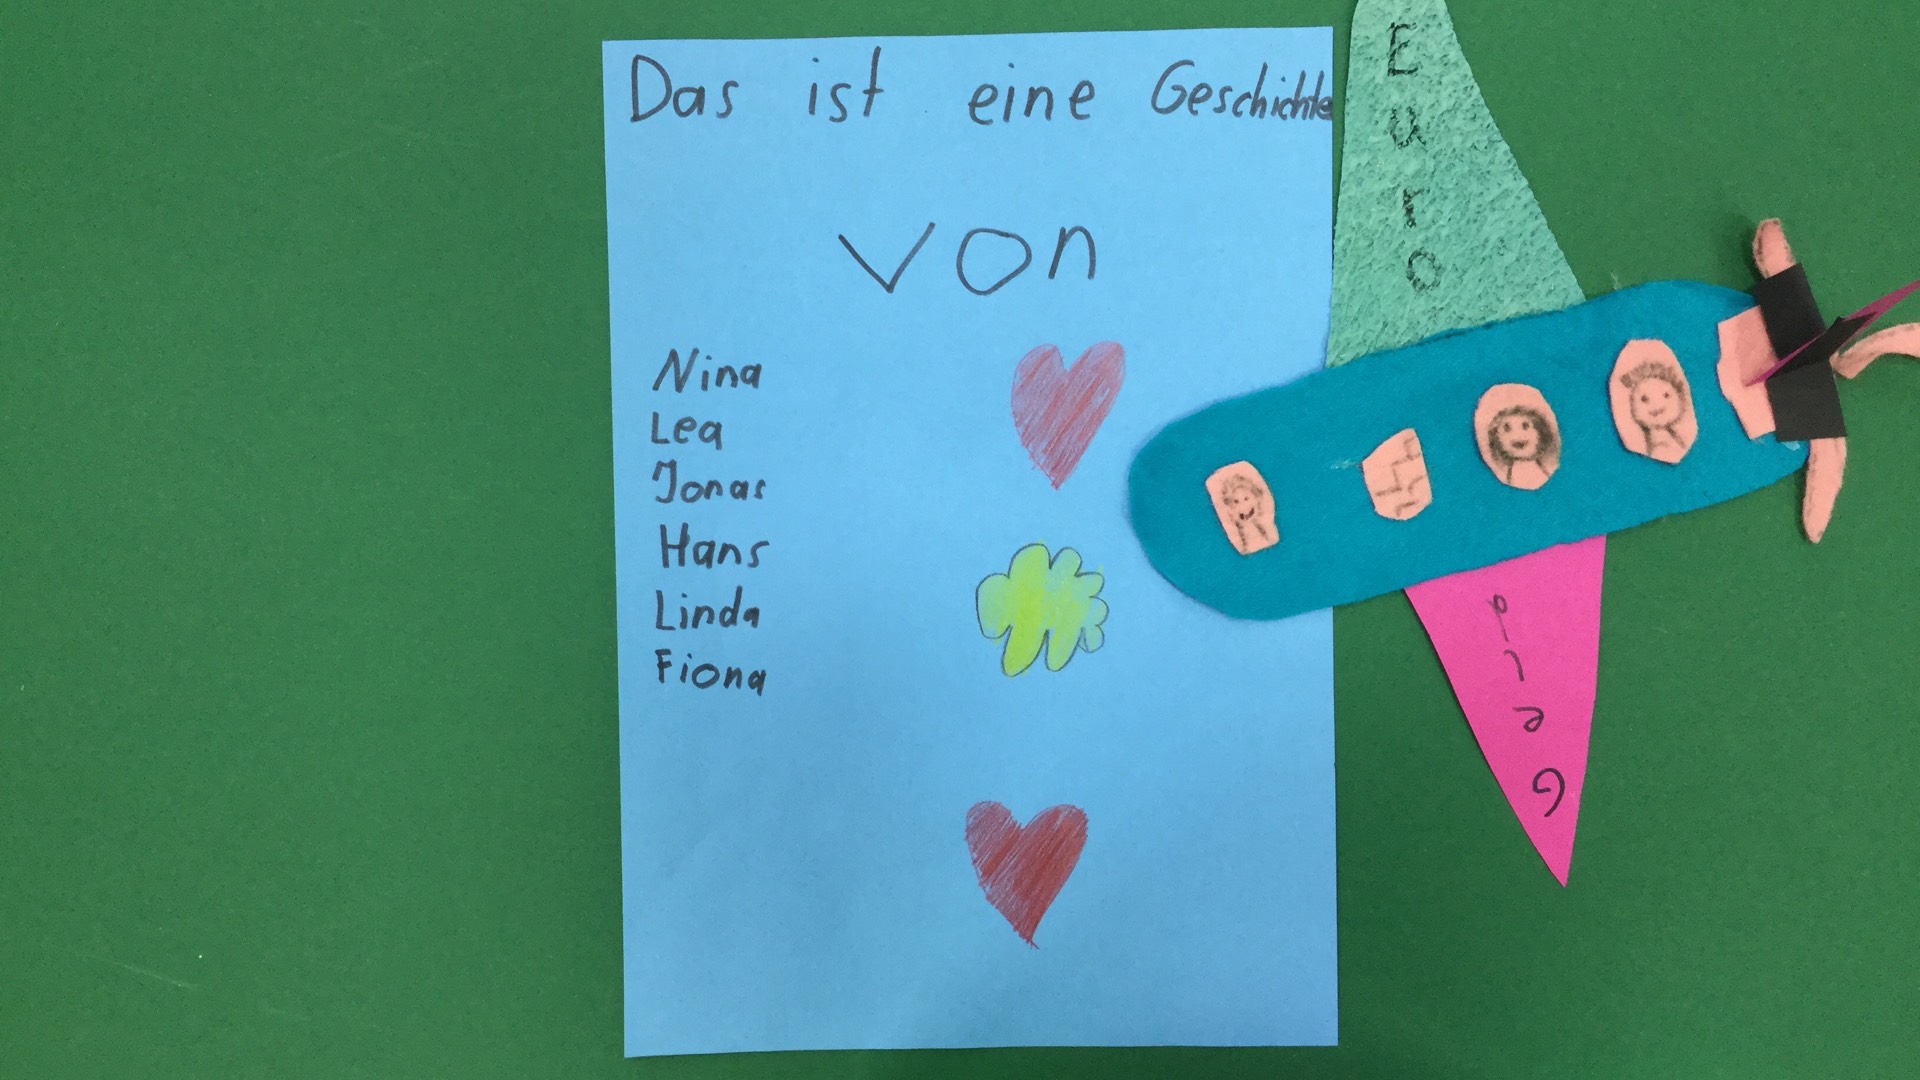 Das ist eine Geschichte
von
Nina
Lea
Jonas
Hans
Linda
Fiona
Euro
Geld